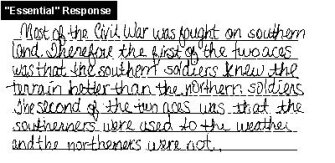 "Essential" Response
Most of the Civil War was fought on southern
land. Therefore the first of the two aces
was that the southern soldiers knew the
terrain better than the northern soldiers.
The second of the two aces was that the
southerners were used to the weather
and the northerners were not.